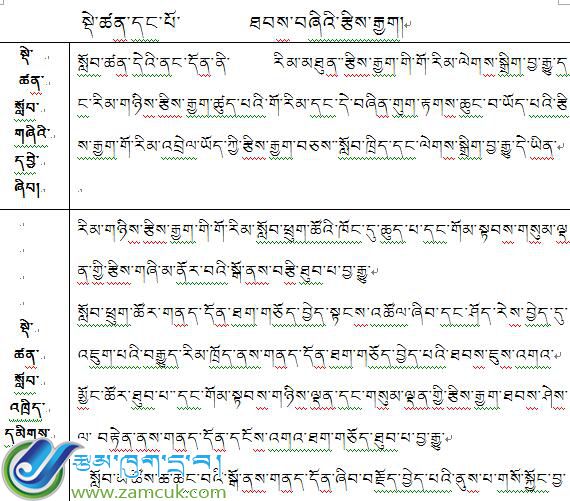 སྡེ་ཚན་དང་པོ་ ཐབས་བཞིའི་རྩིས་རྒྱག།
སྡེ་
ཚན་
སློབ་
གཞིའི་
དབྱེ་
ཞིབ།
སློབ་ཚན་དེའི་ནང་དོན་ནི་ རིམ་མཐུན་རྩིས་རྒྱག་གི་གོ་རིམ་ལེགས་སྒྲིག་བྱ་རྒྱུ་ད
ང་རིམ་གཉིས་རྩིས་རྒྱག་ཚུད་པའི་གོ་རིམ་དང་དེ་བཞིན་གུག་རྟགས་ཆུང་བ་ཡོད་པའི་རྩི
ས་རྒྱག་གོ་རིམ་འབྲེལ་ཡོད་ཀྱི་རྩིས་རྒྱག་བཅས་སློབ་ཁྲིད་དང་ལེགས་སྒྲིག་བྱ་རྒྱུ་དེ་ཡིན་
སྡེ་
ཚན་
སློབ་
འཁྲིད་
དམིགས་
རིམ་གཉིས་རྩིས་རྒྱག་གི་གོ་རིམ་སློབ་ཕྲུག་ཚོའི་ཁོང་དུ་ཆུད་པ་དང་གོམ་སྟབས་གསུམ་ལྡ
ན་གྱི་རྩིས་གཞི་མ་ནོར་བའི་སྒོ་ནས་བརྩི་ཐུབ་པ་བྱ་རྒྱུ་
སློབ་ཕྲུག་ཚོར་གནད་དོན་ཐག་གཅོད་བྱེད་སྟངས་འཚོལ་ཞིབ་དང་ཤོད་རེས་བྱེད་དུ་
འཇུག་པའི་བརྒྱུད་རིམ་ཁྲོད་ནས་གནད་དོན་ཐག་གཅོད་བྱེད་པའི་ཐབས་ཇུས་འགའ་
མྱོང་ཚོར་ཐུབ་པ་དང་གོམ་སྟབས་གཉིས་ལྡན་དང་གསུམ་ལྡན་གྱི་རྩིས་རྒྱག་ཐབས་ཤེས་
ལ་ བརྟེན་ནས་གནད་དོན་དངོས་འགའ་ཐག་གཅོད་ཐུབ་པ་བྱ་རྒྱུ་
སློབ་ཡོ་ཆས་ཚ་ཚང་བའི་སྒོ་ནས་གནད་དོན་ཞིབ་བརྗོད་བྱེད་པའི་ནུས་པ་གསོ་སྐྱོང་བྱ་
རྩམ་ཁུག་དྲ་བ།
www.zamcuk.com